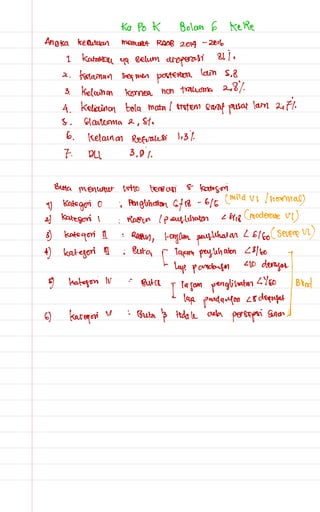 Ka Po K Bolan 6 KeRe
Angka kebutaan menurut RAAB 2014 - 2016
1 Katarak yg belum dioperasi 81%.
2. Kelainan segmen posterior lain 5,8
3. Kelainan kornea non trakoma 2,8%
4. Kelainan bola mata / sistem saraf pusat lain 2,7%
5. Glaukoma 2,5%.
6. Kelainan Refraksi 1,3%
7. DLL 3,9%.
Buta menurut WHO 5 kategori
1) kategori 0 : Penglihatan 6/18 - 6/6 (mild VI / normal)
2) kategori I : / penglihatan < 6/18 (moderate VI)
3) kategori II : tajam penglihatan < 6/60 (Severe VI)
4) kategori III : Buta, tajam penglihatan < 3/60
lap pandangan < 10 derajat
5) kategori IV : Buta tajam penglihatan < 1/60
lap pandangan < 5 derajat
Blind
6) kategori V : Buta & tidak ada persepsi sinar